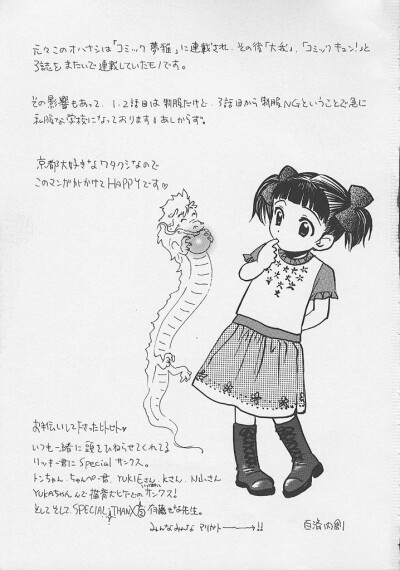 元々このオハナシは「コミック夢雅」に連載され、その後「大我」、「コミックキュン!」と
3誌をまたいで連載していたモノです。
その影響もあって、1、2話目は制服だけど、3話目から制服NGということで急に
私服な学校になっております!あしからず。
京都大好きなワタクシなので
このマンガがかけてHAPPYです♡
お手伝いして下さったヒトビト♡
いつも一緒に頭をひねらせてくれてる
リッキー君にSpecialサンクス。
トンちゃん、ちゃんぺー君、YUKIEさん、Kさん、N山さん
YUKAちゃん
サンクス!
そしてそしてSPECIAL THANX
先生。
みんなみんな アリガトー→!!